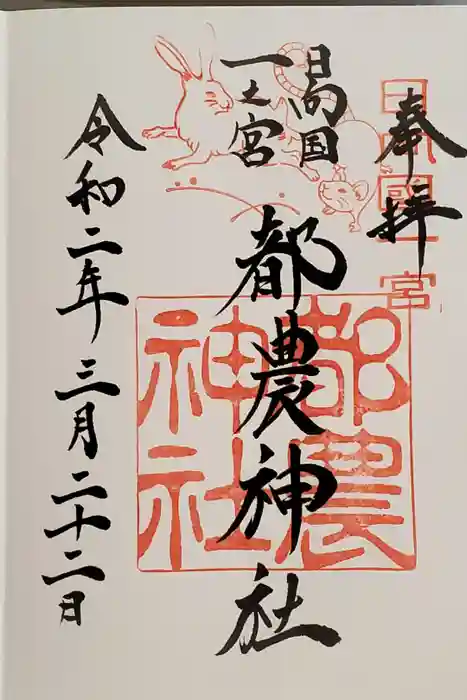 奉拝
日向國一宮
日向国
一之宮
都農神社
都農
神社
令和二年三月二十二日